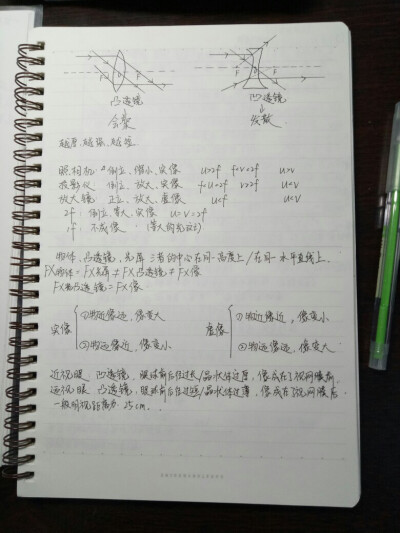 凸透镜 凹透镜
会聚 发散
越厚、越张、越短
照相机: 倒立、缩小、实像 u>2f f<v<2f u>v
投影仪 倒立、放大、实像 f<u<2f v>2f u<v
放大镜 正立、放大、虚像 u<f u<v
2f: 倒立、等大、实像 u=v=2f
1f: 不成像
物体、凸透镜、光屏 三者的中心在同一高度上/在同一水平直线上.
实像 ①物近像远,像变大 虚像 ①物近像近,像变小
②物远像近,像变小 ②物远像远,像变大
近视眼 凹透镜,眼球前后径过长/晶状体过厚,像成在了视网膜前.
远视眼 凸透镜,眼球前后径过短/晶状体过薄,像成在了视网膜后.
一般明视距离为 25cm.